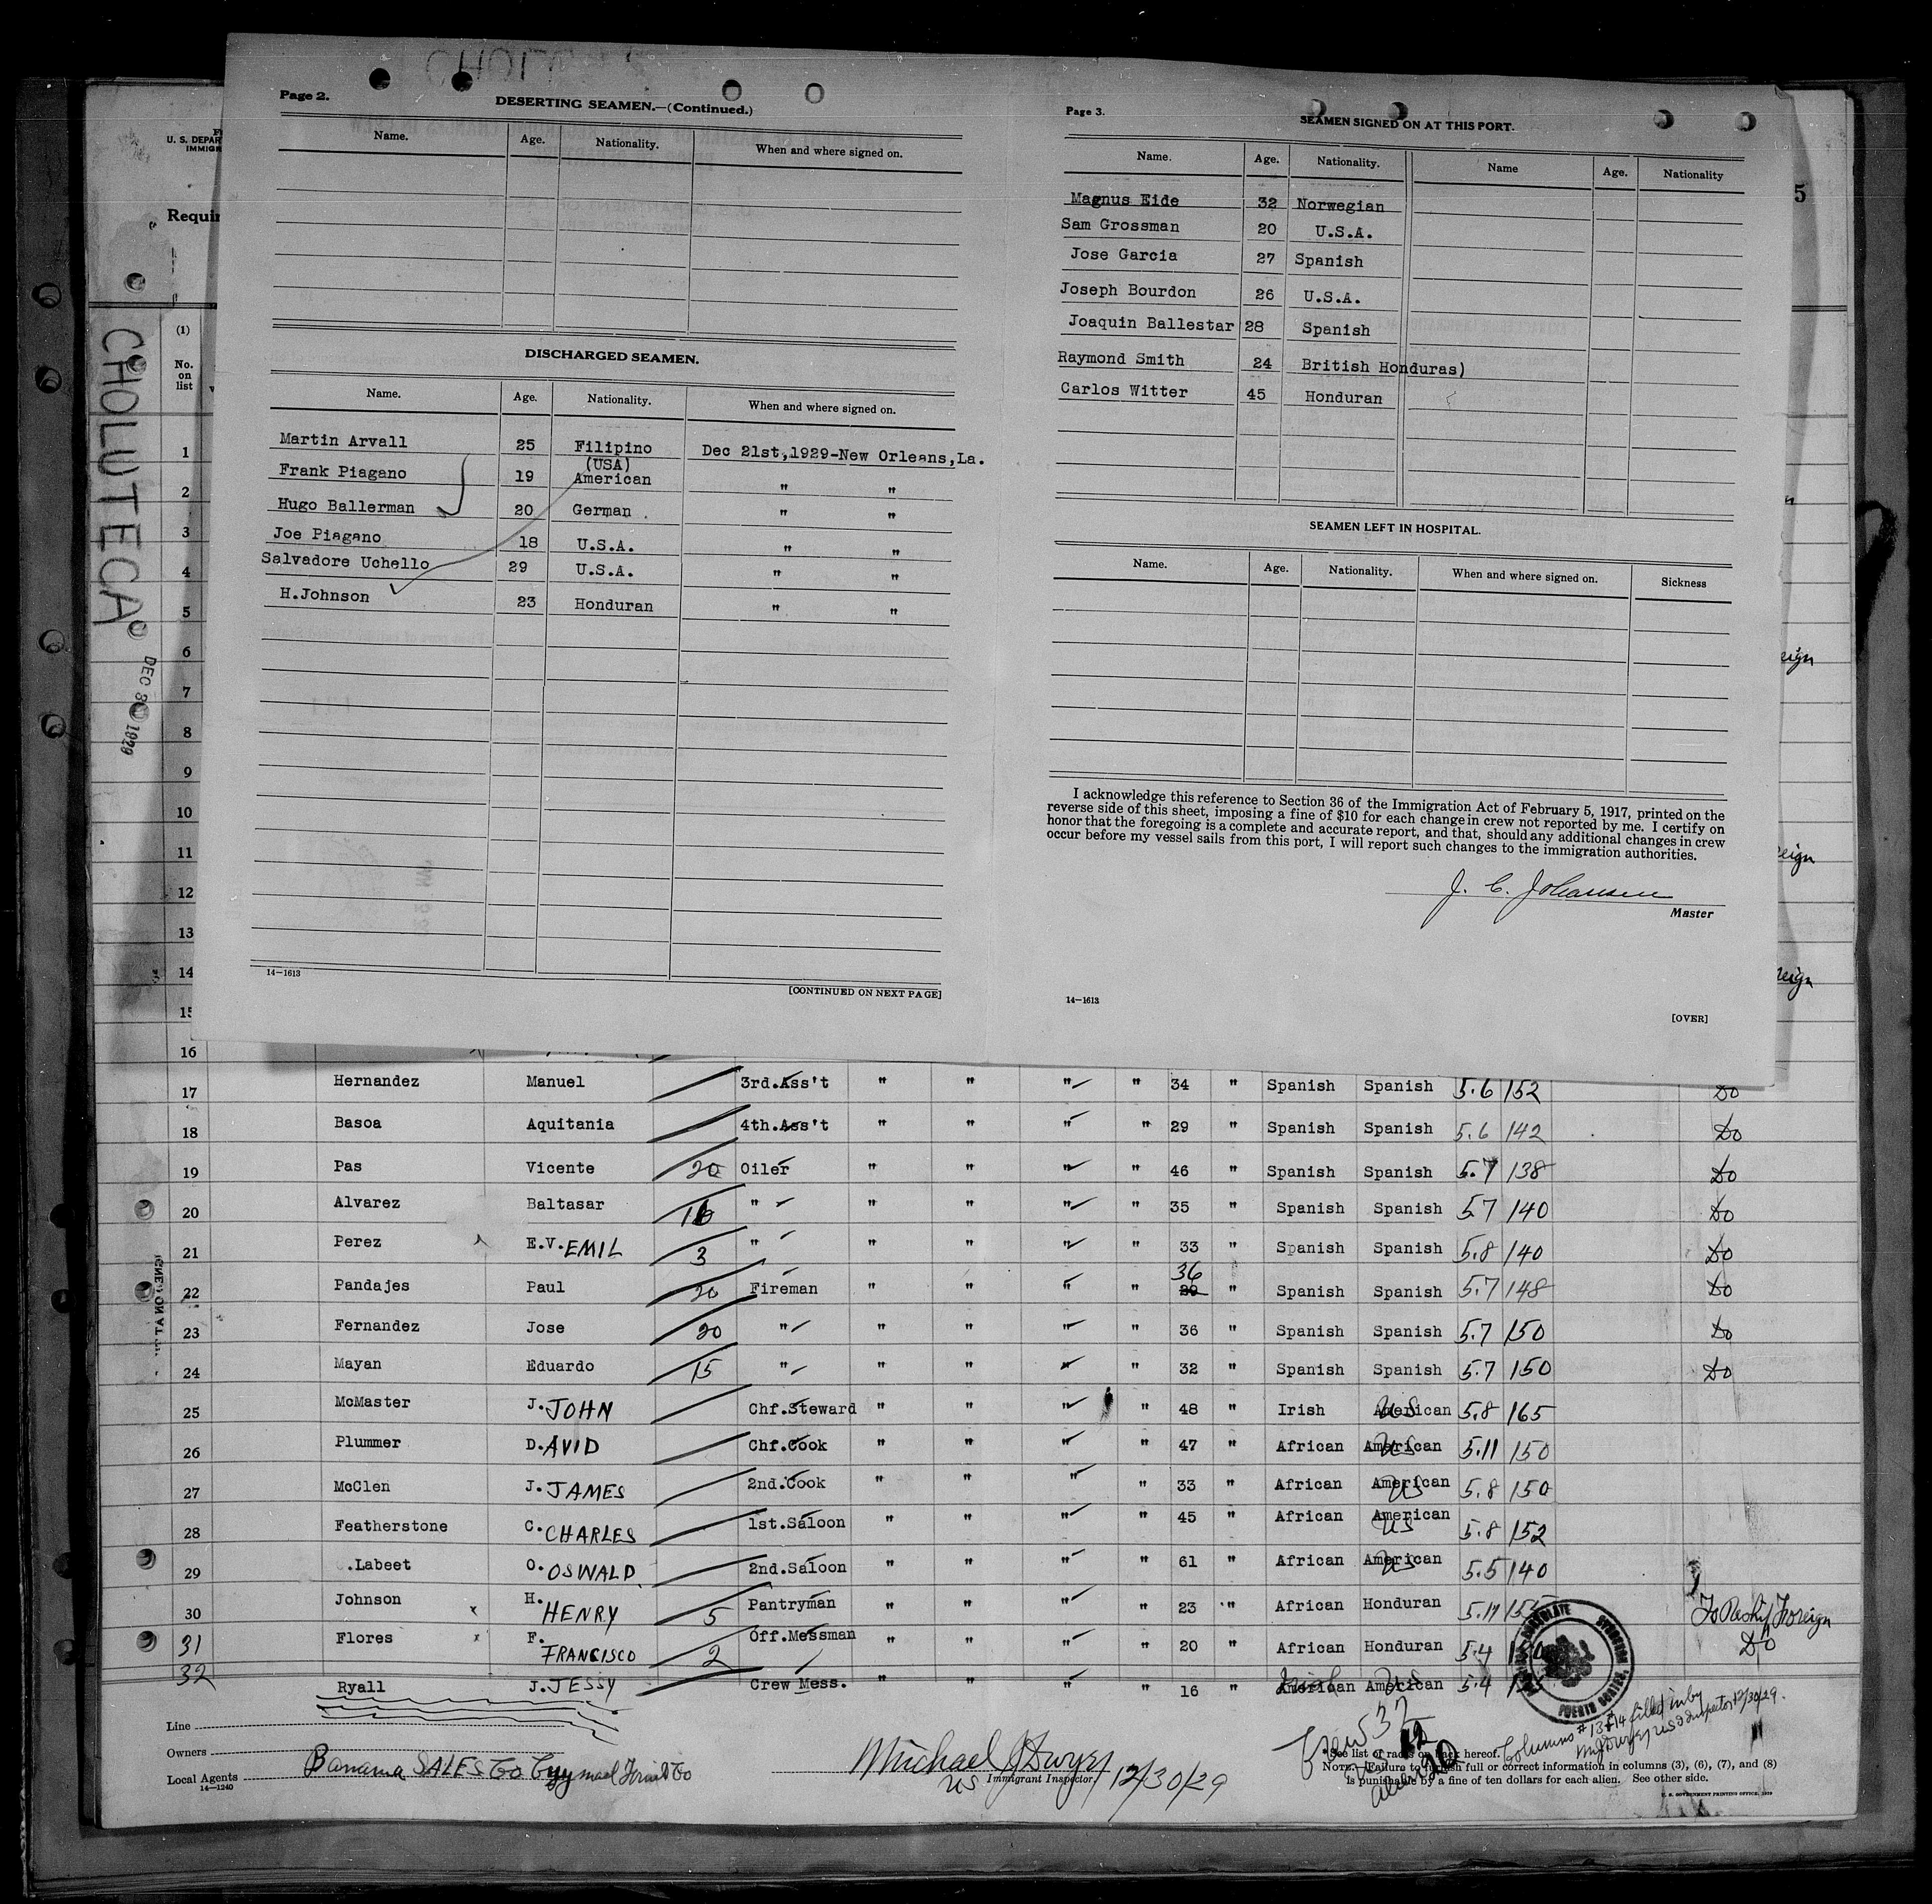 CHOLUTECA
Page 2.
DESERTING SEAMEN.—(Continued.)
Name. Age. Nationality. When and where signed on.
DISCHARGED SEAMEN.
Name. Age. Nationality. When and where signed on.
Martin Arvall 25 Filipino Dec 21st,1929-New Orleans,La.
(USA)
Frank Piagano 19 American " "
Hugo Ballerman 20 German " "
Joe Piagano 18 U.S.A. " "
Salvadore Uchello 29 U.S.A. " "
H.Johnson 23 Honduran " "
14—1613
[CONTINUED ON NEXT PAGE]
Page 3.
SEAMEN SIGNED ON AT THIS PORT.
Name. Age. Nationality. Name Age. Nationality
Magnus Eide 32 Norwegian
Sam Grossman 20 U.S.A.
Jose Garcia 27 Spanish
Joseph Bourdon 26 U.S.A.
Joaquin Ballestar 28 Spanish
Raymond Smith 24 British Honduras)
Carlos Witter 45 Honduran
SEAMEN LEFT IN HOSPITAL.
Name. Age. Nationality. When and where signed on. Sickness
I acknowledge this reference to Section 36 of the Immigration Act of February 5, 1917, printed on the
reverse side of this sheet, imposing a fine of $10 for each change in crew not reported by me. I certify on
honor that the foregoing is a complete and accurate report, and that, should any additional changes in crew
occur before my vessel sails from this port, I will report such changes to the immigration authorities.
J. C. Johansen
Master
14—1613
[OVER]
U. S. DEPAR
IMMIG
Requi
5
(1)
No.
on
list
CHOLUTECA
DEC 30 1929
1
2
3
4
5
6
7
8
9
10
11
12
13
14
15
16
eign
eign
eign
17 Hernandez Manuel 3rd.Ass't " " " " 34 " Spanish Spanish 5.6 152 Do
18 Basoa Aquitania 4th.Ass't " " " " 29 " Spanish Spanish 5.6 142 Do
19 Pas Vicente 20 Oiler " " " " 46 " Spanish Spanish 5.7 138 Do
20 Alvarez Baltasar 16 " " " " " 35 Spanish Spanish 5.7 140 Do
21 Perez E.V. EMIL 3 " " " " " 33 " Spanish Spanish 5.8 140 Do
36
22 Pandajes Paul 20 Fireman " " " " 29 " Spanish Spanish 5.7 148 Do
23 Fernandez Jose 20 " " " " " 36 " Spanish Spanish 5.7 150 Do
24 Mayan Eduardo 15 " " " " " 32 " Spanish Spanish 5.7 150 Do
25 McMaster J. JOHN Chf.Steward " " " " 48 " Irish American US 5.8 165
26 Plummer D.AVID Chf.Cook " " " " 47 " African American US 5.11 150
27 McClen J. JAMES 2nd.Cook " " " " 33 " African American US 5.8 150
28 Featherstone C. CHARLES 1st.Saloon " " " " 45 " African American US 5.8 152
29 Labeet O. OSWALD 2nd.Saloon " " " " 61 " African American US 5.5 140
30 Johnson H. HENRY 5 Pantryman " " " " 23 " African Honduran 5.11 To Reship Foreign
31 Flores F. FRANCISCO 2 Off.Messman " " " " 20 " African Honduran 5.4 Do
32 Ryall J. JESSY Crew Mess. " " " " 16 " American American US 5.4
Line
Owners
Local Agents Banana SALES Co Cuyamel Fruit Co
14—1240
Michael J Dwyer
US Immigrant Inspector. 12/30/29
Crew 32
US 12
aliens 20
Columns #13 & 14 filled in by
US Inspector 12/30/29.
*See list of races on back hereof.
NOTE.—Failure to furnish full or correct information in columns (3), (6), (7), and (8)
is punishable by a fine of ten dollars for each alien. See other side.
U. S. GOVERNMENT PRINTING OFFICE, 1929